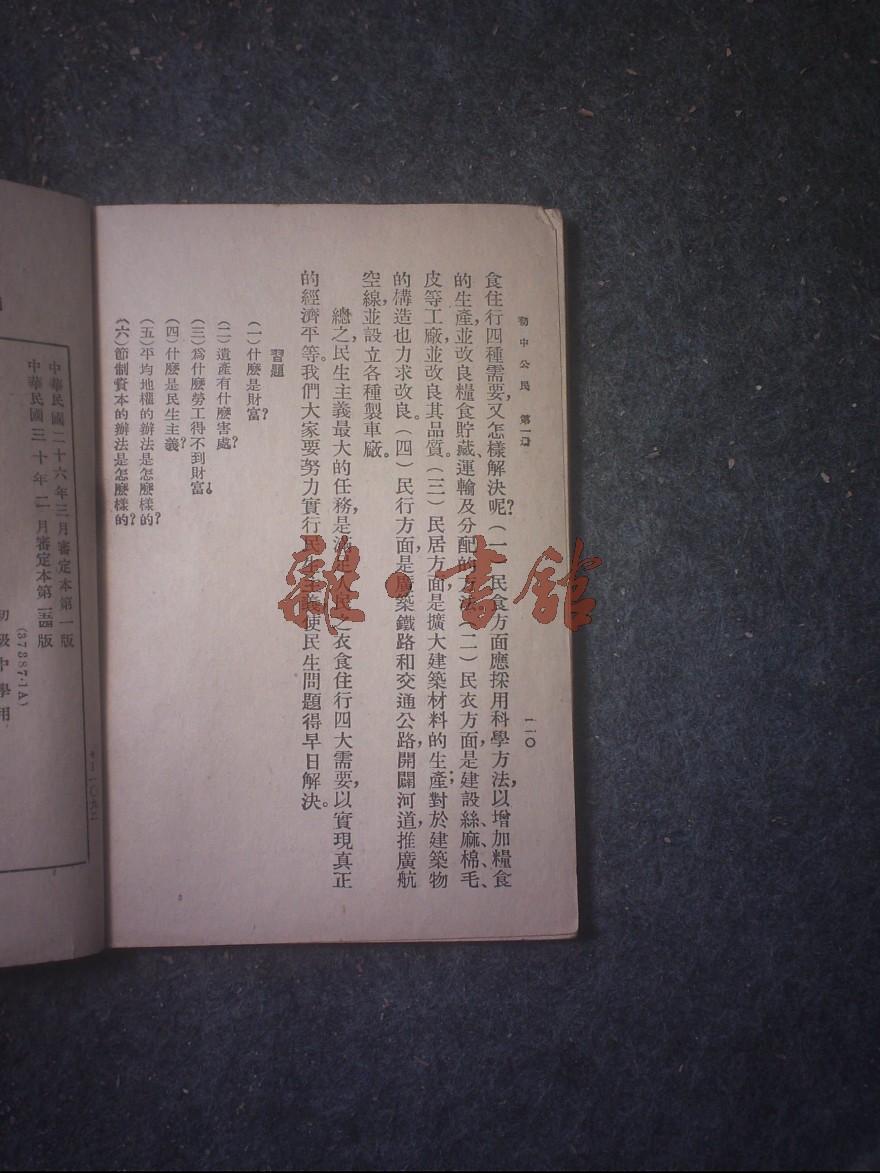 初中公民 第一冊
一一〇
食住行四種需要，又怎樣解決呢？（一）民食方面應採用科學方法，以增加糧食
的生產，並改良糧食貯藏、運輸及分配的方法。（二）民衣方面，是建設絲、麻、棉、毛、
皮等工廠，並改良其品質。（三）民居方面，是擴大建築材料的生產；對於建築物
的構造也力求改良。（四）民行方面，是廣築鐵路和交通公路，開闢河道，推廣航
空線，並設立各種製車廠。
總之，民生主義最大的任務，是滿足人民之衣食住行四大需要，以實現真正
的經濟平等。我們大家要努力實行民生主義，使民生問題得早日解決。
習題
（一）什麼是財富？
（二）遺產有什麼害處？
（三）爲什麼勞工得不到財富？
（四）什麼是民生主義？
（五）平均地權的辦法是怎麼樣的？
（六）節制資本的辦法是怎麼樣的？
中華民國二十六年三月審定本第一版
中華民國三十年二月審定本第 版
(37387·1A)
初級中學用
雜·書館